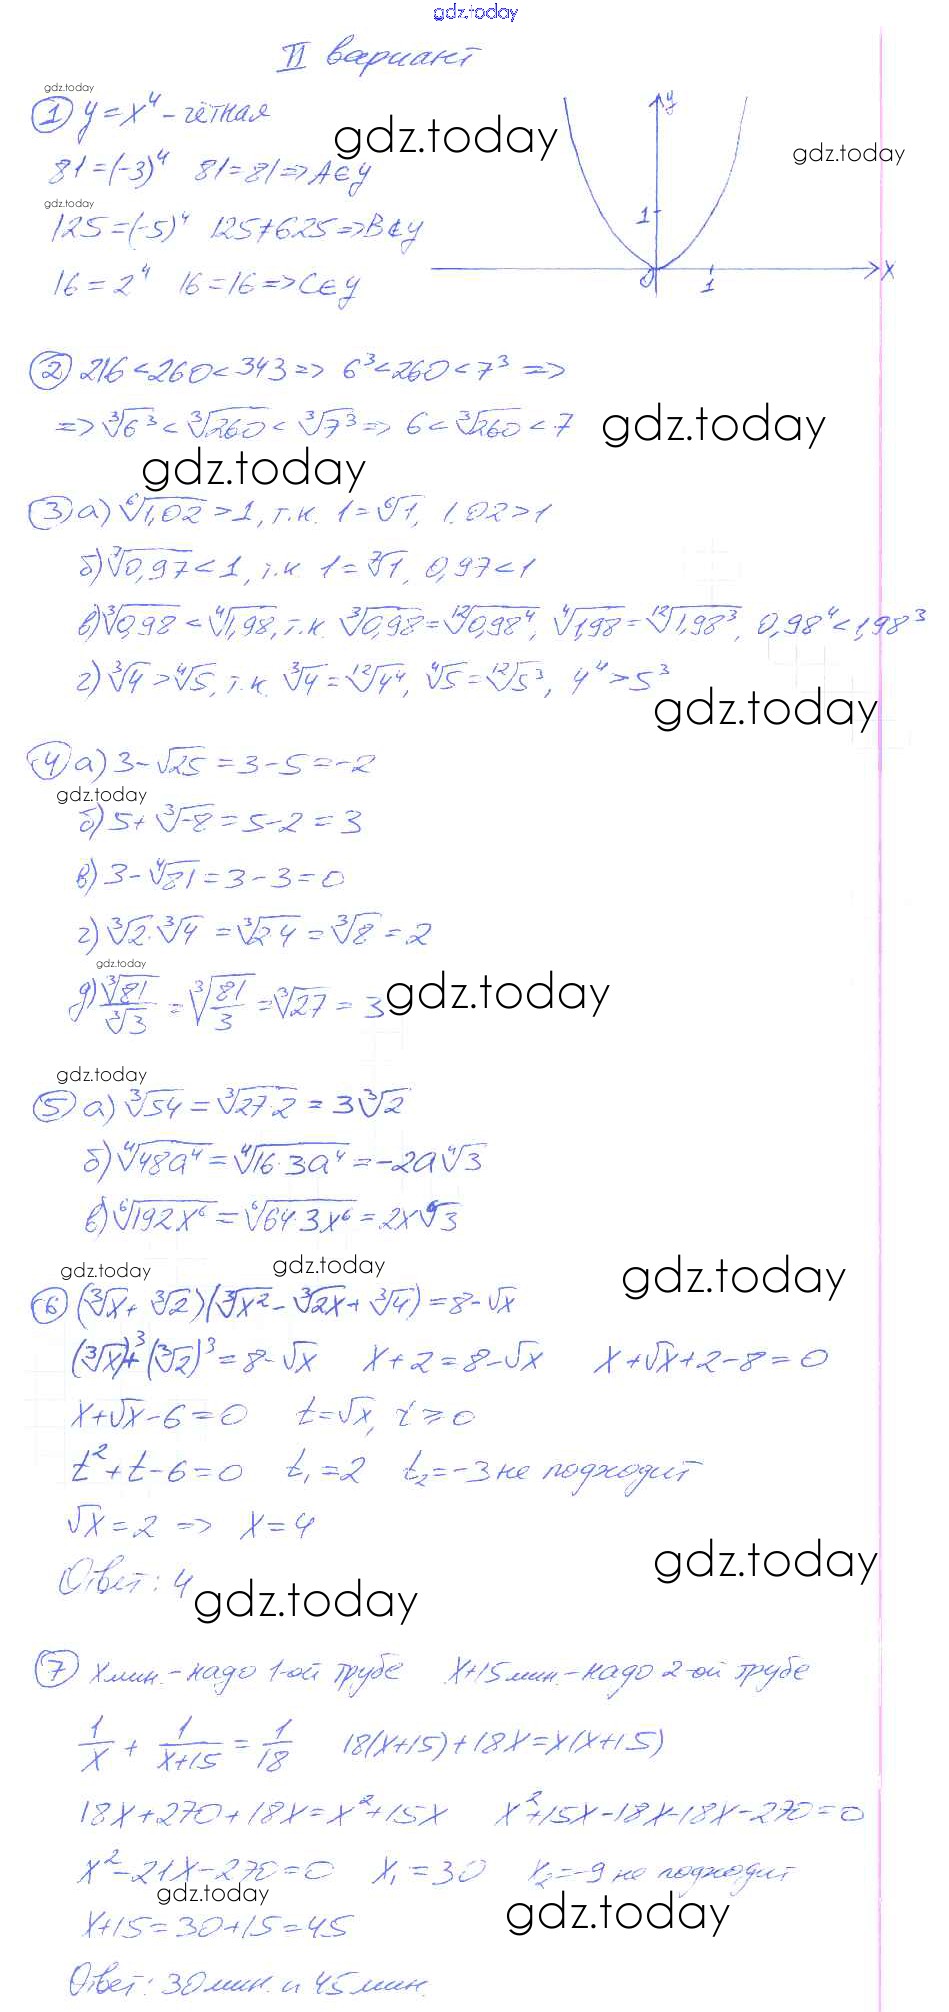 gdz.today
II вариант
gdz.today
① y = x⁴ – чётная
gdz.today
gdz.today
81 = (-3)⁴ 81 = 81 => A ∈ y
gdz.today
125 = (-5)⁴ 125 ≠ 625 => B ∉ y
16 = 2⁴ 16 = 16 => C ∈ y
y
1
0
1
x
② 216 < 260 < 343 => 6³ < 260 < 7³ =>
=> ∛6³ < ∛260 < ∛7³ => 6 < ∛260 < 7
gdz.today
gdz.today
③ а) ⁶√1,02 > 1, т.к. 1 = ⁶√1, 1.02 > 1
б) ⁷√0,97 < 1, т.к. 1 = ⁷√1, 0,97 < 1
в) ∛0,98 < ∜1,98, т.к. ∛0,98 = ¹²√0,98⁴, ∜1,98 = ¹²√1,98³, 0,98⁴ < 1,98³
г) ∛4 > ∜5, т.к. ∛4 = ¹²√4⁴, ∜5 = ¹²√5³, 4⁴ > 5³
gdz.today
④ а) 3 - √25 = 3 - 5 = -2
gdz.today
б) 5 + ∛-8 = 5 - 2 = 3
в) 3 - ∜81 = 3 - 3 = 0
г) ∛2 · ∛4 = ∛2·4 = ∛8 = 2
gdz.today
д) ∛81/∛3 = ∛(81/3) = ∛27 = 3
gdz.today
gdz.today
⑤ а) ∛54 = ∛27·2 = 3∛2
б) ∜48a⁴ = ∜16·3a⁴ = -2a∜3
в) ⁶√192x⁶ = ⁶√64·3x⁶ = 2x⁶√3
gdz.today
gdz.today
gdz.today
⑥ (∛x + ∛2)(∛x² - ∛2x + ∛4) = 8 - √x
(∛x)³ + (∛2)³ = 8 - √x x + 2 = 8 - √x x + √x + 2 - 8 = 0
x + √x - 6 = 0 t = √x, t ≥ 0
t² + t - 6 = 0 t₁ = 2 t₂ = -3 не подходит
√x = 2 => x = 4
gdz.today
Ответ: 4
gdz.today
⑦ x мин. – надо 1-ой трубе x+15 мин. – надо 2-ой трубе
1/x + 1/(x+15) = 1/18 18(x+15) + 18x = x(x+15)
18x + 270 + 18x = x² + 15x x² + 15x - 18x - 18x - 270 = 0
x² - 21x - 270 = 0 x₁ = 30 x₂ = -9 не подходит
gdz.today
gdz.today
x + 15 = 30 + 15 = 45
Ответ: 30 мин. и 45 мин.